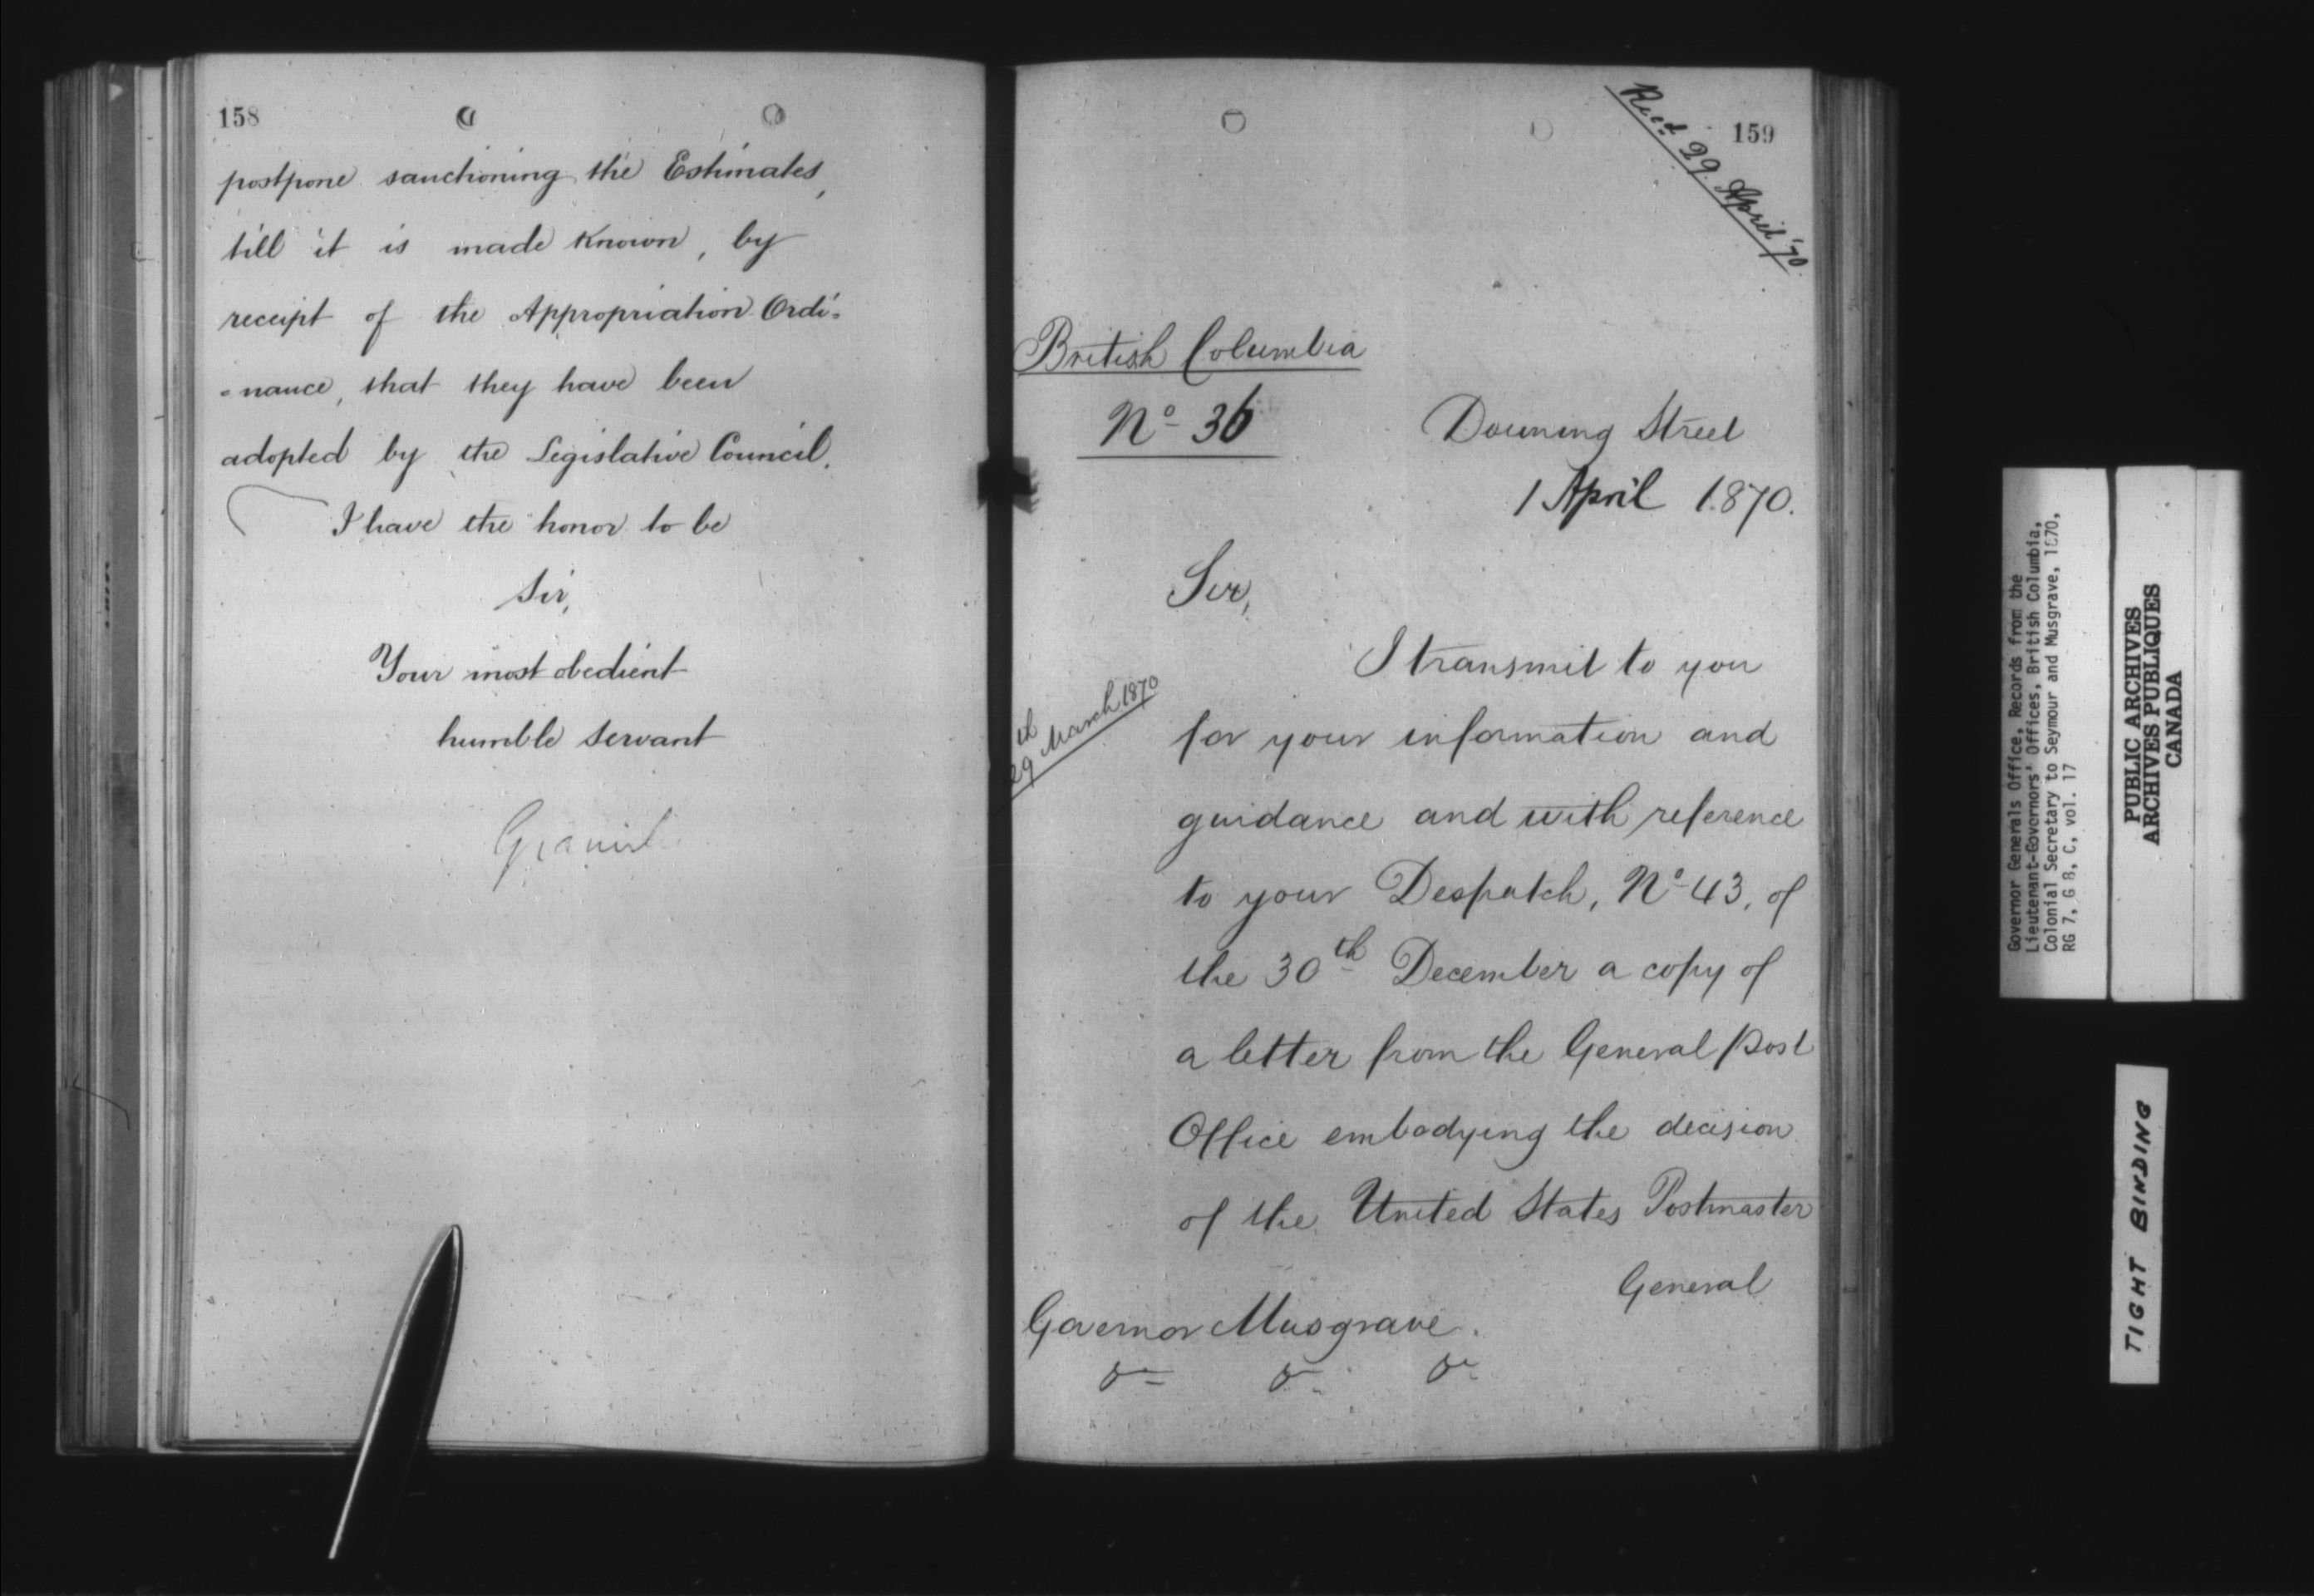 158
postpone sanctioning the Estimates,
till it is made known, by
receipt of the Appropriation Ordi=
=nance, that they have been
adopted by the Legislative Council.
I have the honor to be
Sir,
Your most obedient
humble servant
159
Recd 29 April '70.
British Columbia
No 36
Downing Street
1 April 1870.
Sir,
I transmit to you
29th March 1870
for your information and
guidance and with reference
to your Despatch, No 43, of
the 30th December a copy of
a letter from the General Post
Office embodying the decision
of the United States Postmaster
General
Governor Musgrave.
Governor Generals Office, Records from the
Lieutenant-Governors' Offices, British Columbia,
Colonial Secretary to Seymour and Musgrave, 1870,
RG 7, G 8, C, vol. 17
PUBLIC ARCHIVES
ARCHIVES PUBLIQUES
CANADA
TIGHT BINDING